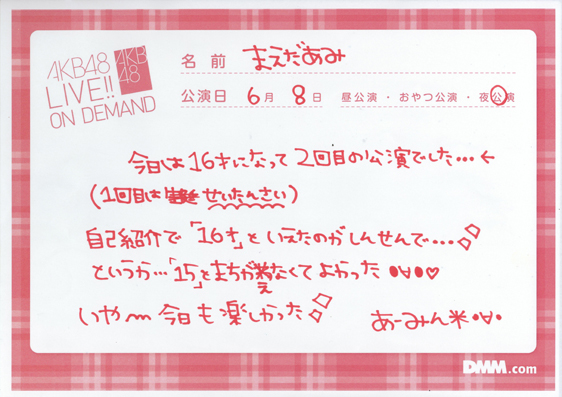 AKB48
LIVE!!
ON DEMAND
AKB
48
名前 まえだあみ
公演日 6月 8日 昼公演・おやつ公演・夜公演
今日は16才になって2回目の公演でした…←
(1回目は せいたんさい)
自己紹介で「16才」といえたのがしんせんで…
というか…「15」とまちがえなくてよかった
いや〜 今日も楽しかった
あーみん米
DMM.com